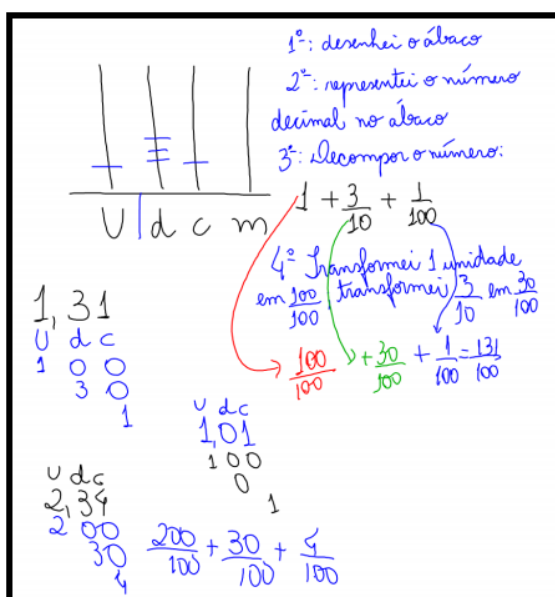 1º: desenhei o ábaco
2º: representei o número
decimal no ábaco
3º: Decompor o número:
U d c m
1 + 3/10 + 1/100
4º Transformei 1 unidade
em 100/100, transformei 3/10 em 30/100
100/100 + 30/100 + 1/100 = 131/100
1,31
U d c
1 0 0
3 0
1
U d c
1,01
1 0 0
0
1
U d c
2,34
2 0 0
30
4
200/100 + 30/100 + 4/100